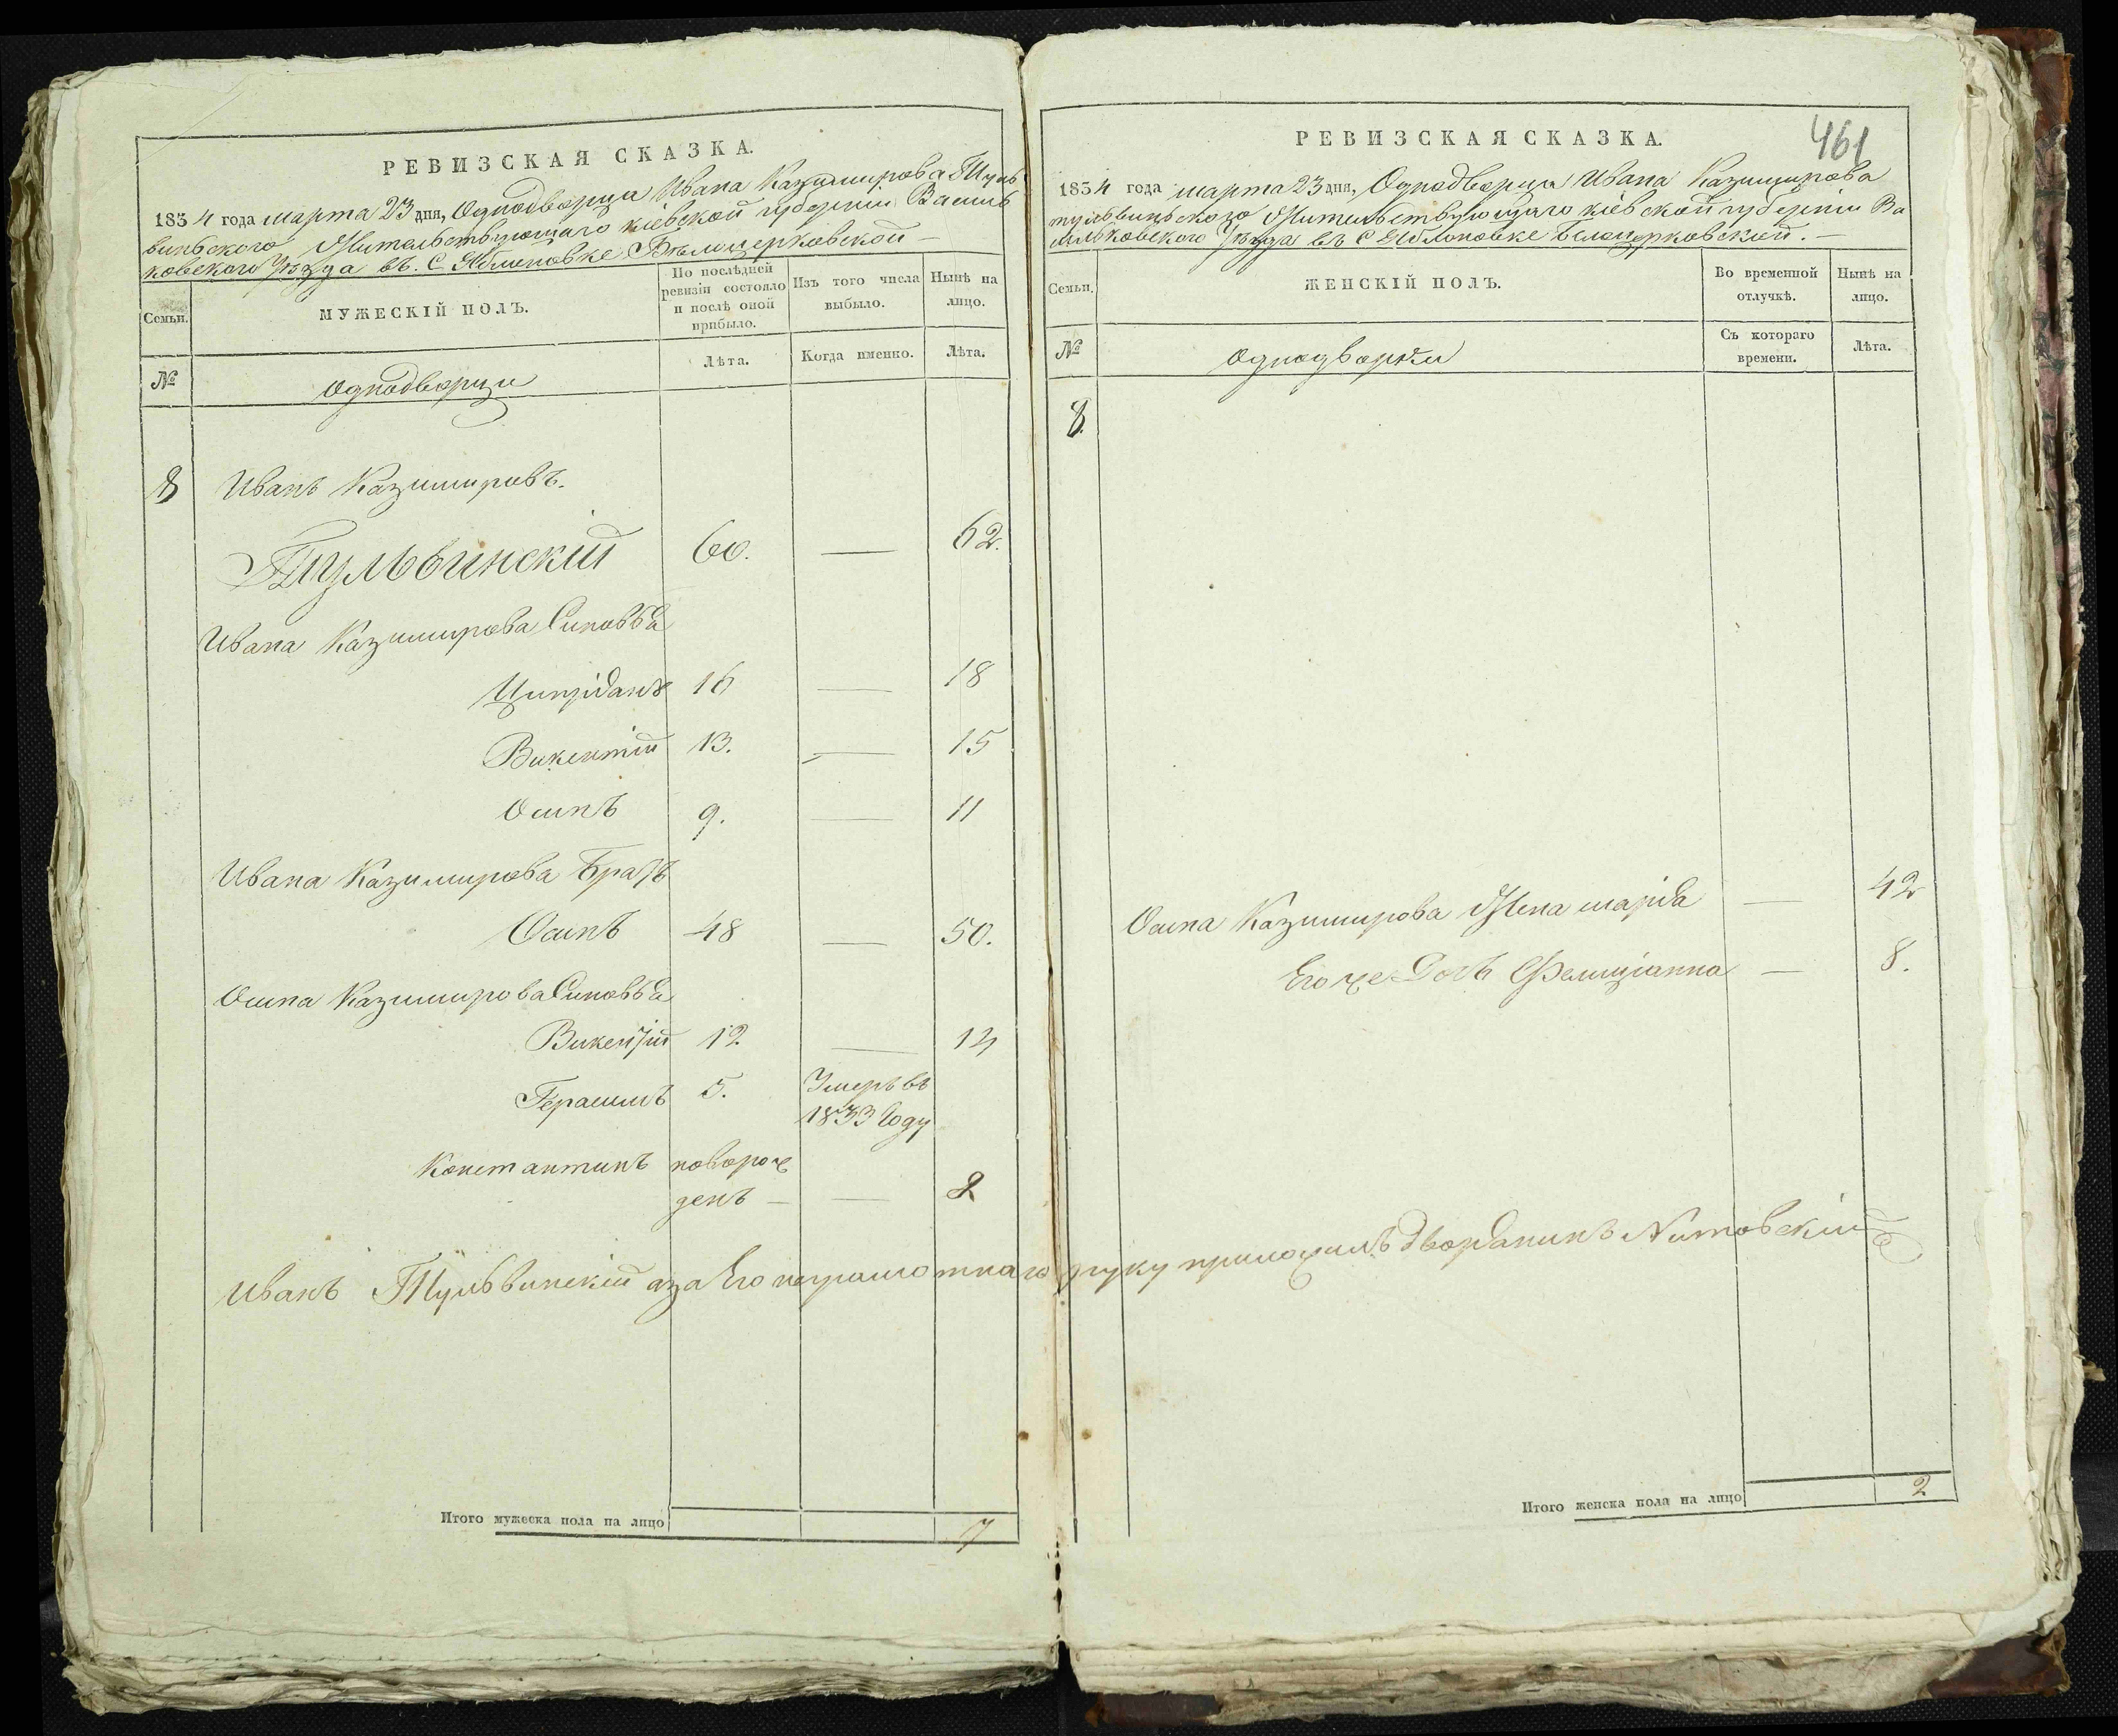 РЕВИЗСКАЯ СКАЗКА.
1834 года марта 23 дня, Однодворца Ивана Казимирова Туль
винского Жительствующаго кіевской губерніи Василь
ковского Уѣзда въ. С Яблоновке Бѣлоцерковской —
Семьи.
МУЖЕСКІЙ ПОЛЪ.
По послѣдней ревизіи состояло и послѣ оной прибыло.
Изъ того числа выбыло.
Нынѣ на лицо.
№
Однодворци
Лѣта.
Когда именно.
Лѣта.
8 Иванъ Казимировъ.
Тульвинскій 60. — 62.
Ивана Казимирова Синовья
16 — 18
Викентій 13. — 15
Осипъ 9. — 11
Ивана Казимирова Братъ
Осипъ 48 — 50.
Осипа Казимирова Синовья
Викентій 12 — 14
Герасимъ 5. Умеръ въ
1833 Году
Константинъ новорож
денъ — — 2
Иванъ Тульвинскій а за Его неграмотнаго руку приложилъ дворянинъ Витовскій
Итого мужеска пола на лицо 7
461
РЕВИЗСКАЯ СКАЗКА.
1834 года марта 23 дня, Однодворца Ивана Казимирова
тульвинского Жительствующаго кіевской губерніи Ва
сильковского Уѣзда въ С Яблоновке Белоцерковской. —
Семьи.
ЖЕНСКІЙ ПОЛЪ.
Во временной отлучкѣ.
Нынѣ на лицо.
№
Однодворки
Съ котораго времени.
Лѣта.
8.
Осипа Казимирова Жена марія — 42
Его же Дочь Фелиціанна — 8.
Итого женска пола на лицо 2